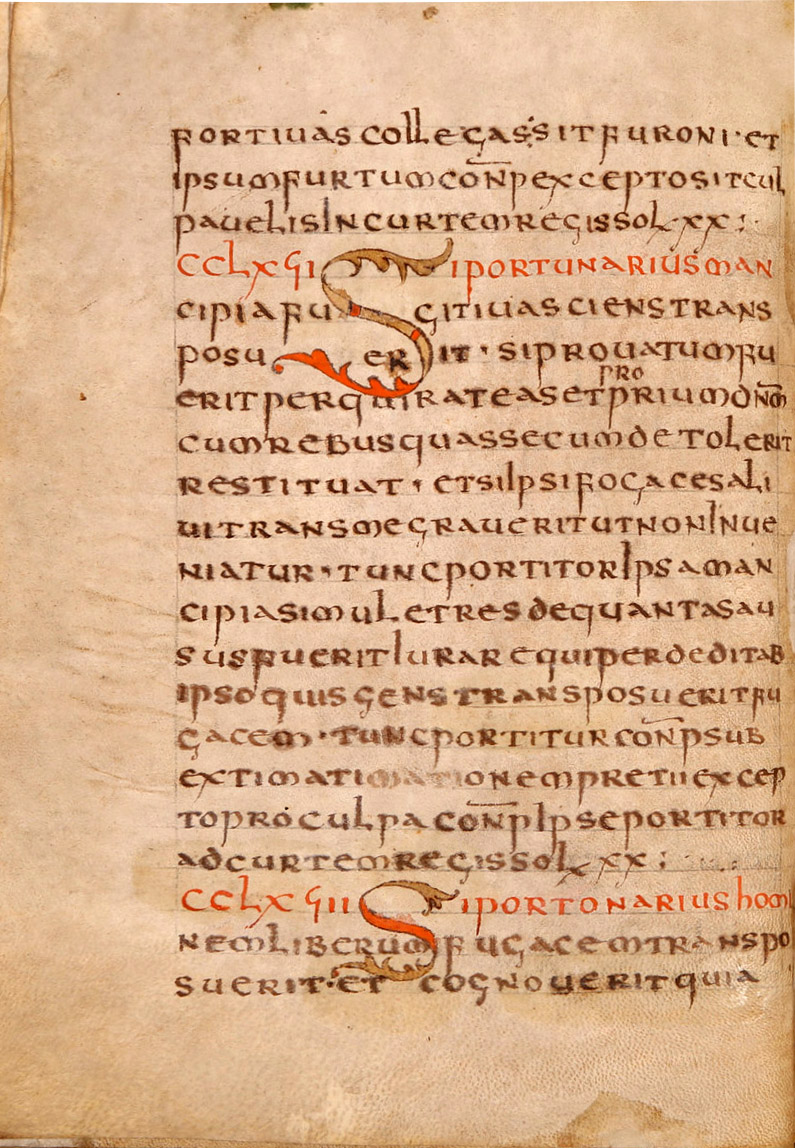 fortiuas collegassit furoni · et
ipsum furtum con̅p excepto sit cul
pauelis In curtem regis sol xx :
CCLXGI Si portunarius man
cipia fugitiua sciens trans
posuerit · si prouatum fu
erit perquirat eas et proprium dn̅m
cum rebus quas secum detolerit
restituat · et si Ipsi fogaces ali
ui transmegrauerit ut non Inue
niatur · tunc portitor Ipsa man
cipia simul et res de quantas au
sus fuerit Iurare qui perdedit ab
ipso quis gens transposuerit fu
gacem · tunc portitur con̅p sub
extimatimationem pretii excep
to pro culpa con̅p Ipse portitor
ad curtem regis sol xx :
CCLXGII Si portonarius homi
nem liberum fugacem transpo
suerit · et cognouerit quia